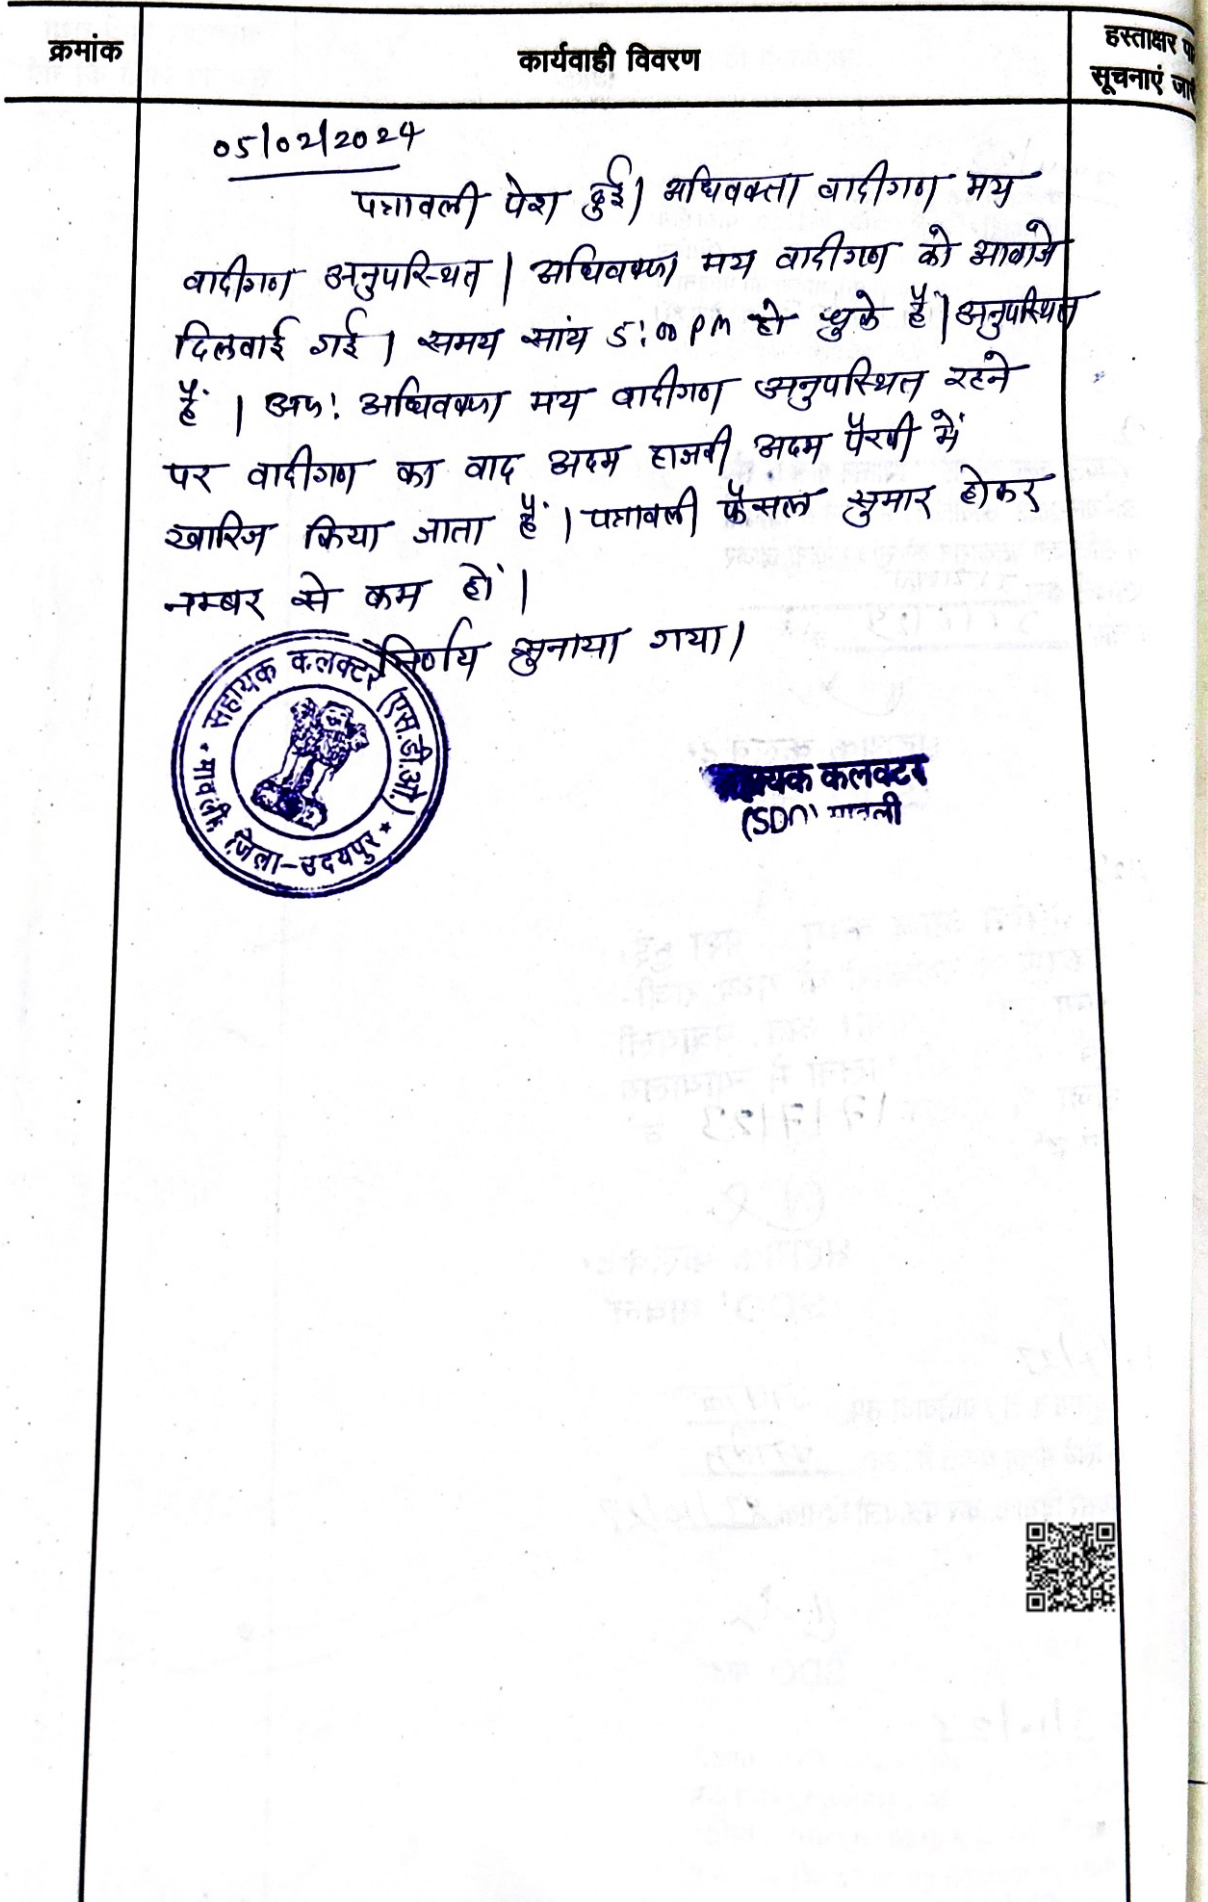 क्रमांक
कार्यवाही विवरण
हस्ताक्षर
सूचनाएं
05/02/2024
पत्रावली पेश हुई। अधिवक्ता वादीगण मय
वादीगण अनुपस्थित। अधिवक्ता मय वादीगण को आवाजे
दिलवाई गई। समय सांय 5:00 pm हो चुके हैं। अनुपस्थित
हैं। अतः अधिवक्ता मय वादीगण अनुपस्थित रहने
पर वादीगण का वाद अदम हाजरी अदम पैरवी में
खारिज किया जाता हैं। पत्रावली फैसल सुमार होकर
नम्बर से कम हों।
निर्णय सुनाया गया।
सहायक कलक्टर (एस.डी.ओ.)
* मावली, जिला-उदयपुर *
सहायक कलक्टर
(SDO) मावली